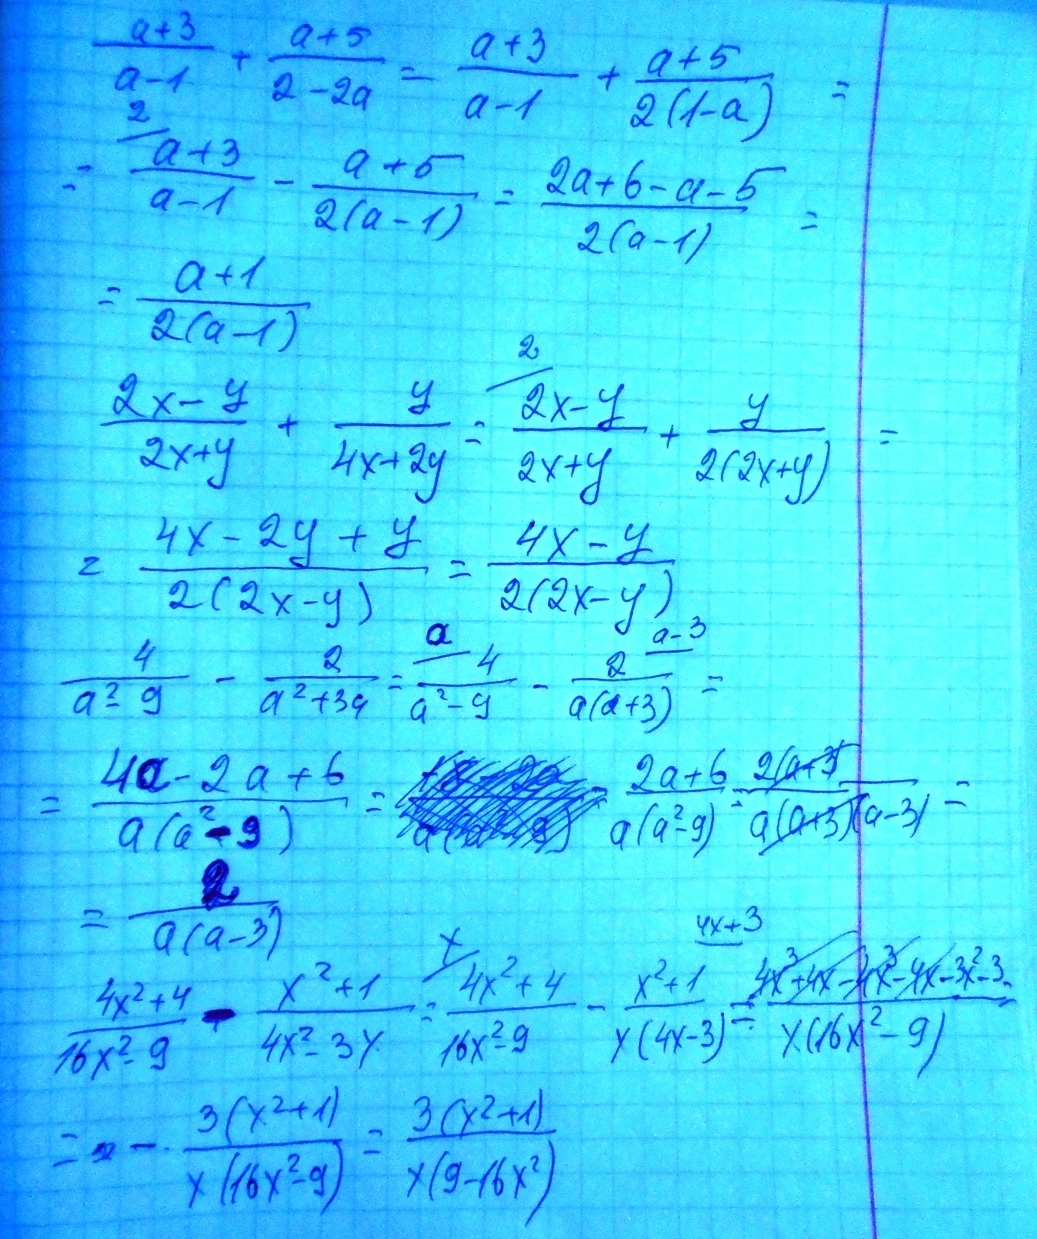 (a+3)/(a-1) + (a+5)/(2-2a) = (a+3)/(a-1) + (a+5)/(2(1-a)) =
= ²⟋ (a+3)/(a-1) - (a+5)/(2(a-1)) = (2a+6-a-5)/(2(a-1)) =
= (a+1)/(2(a-1))
(2x-y)/(2x+y) + y/(4x+2y) = ²⟋ (2x-y)/(2x+y) + y/(2(2x+y)) =
= (4x-2y+y)/(2(2x-y)) = (4x-y)/(2(2x-y))
4/(a²-9) - 2/(a²+3a) = ᵃ⟋ 4/(a²-9) - 2/(a(a+3)) ⟋a-3 =
= (4a-2a+6)/(a(a²-9)) = (2a+6)/(a(a²-9)) = (2(a+3))/(a(a+3)(a-3)) =
= 2/(a(a-3))
(4x²+4)/(16x²-9) - (x²+1)/(4x²-3x) = ˣ⟋ (4x²+4)/(16x²-9) - (x²+1)/(x(4x-3)) ⟋4x+3 = (4x³+4x-4x³-4x-3x²-3)/(x(16x²-9)) =
= - (3(x²+1))/(x(16x²-9)) = (3(x²+1))/(x(9-16x²))